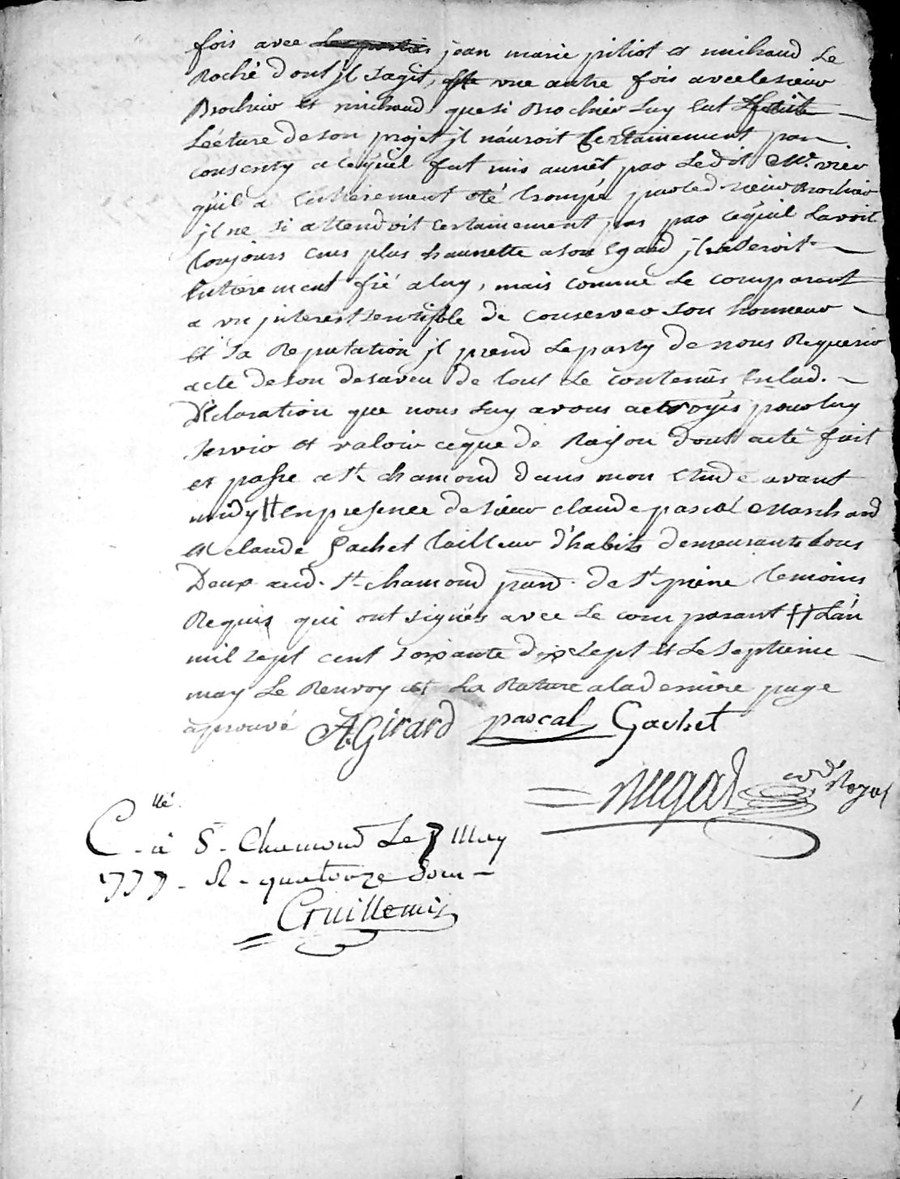 fois avec les parties jean marie piliot et michaud le
Roché dont jl sagit, une autre fois avec le sieur
Brochier et michaud, que si Brochier luy eut faitte
Lécture de son projet jl nauroit Certainement pas
consenty a ce quil fut mis au net par ledit Me. vier
quil a Entierement été trompé par led. sieur Brochier
jl ne si attendoit Certainement pas par ce quil Lavoit
toujours cru plus haunette a son Egard jl se seroit
Entierement fié a luy, mais comme le comparant
a un jnterest sensible de conserver son honneur
et sa Reputation jl prend le party de nous Requerir
acte de son desaveu de tout le contenus En lad.
Déclaration que nous luy avons actroyés pour luy
servir et valoir ce que de Raison dont acte fait
et passé a St. chamond dans mon Etude avant
midy ++ En presence de sieur claude pascal Marchand
et claude Gachet tailleur d'habits demeurants tous
Deux aud. St. chamond par. de St. pierre temoins
Requis qui ont signés avec le comparant ++ L'an
mil sept cent soixante dix sept et le septieme
may le Renvoy et La Rature a la derniere page
aprouvé AGirard pascal Gachet
nugal no.re Royal
C.llé à St. Chamond Le 7 May
1777 - R - quatorze sous
Guillemin